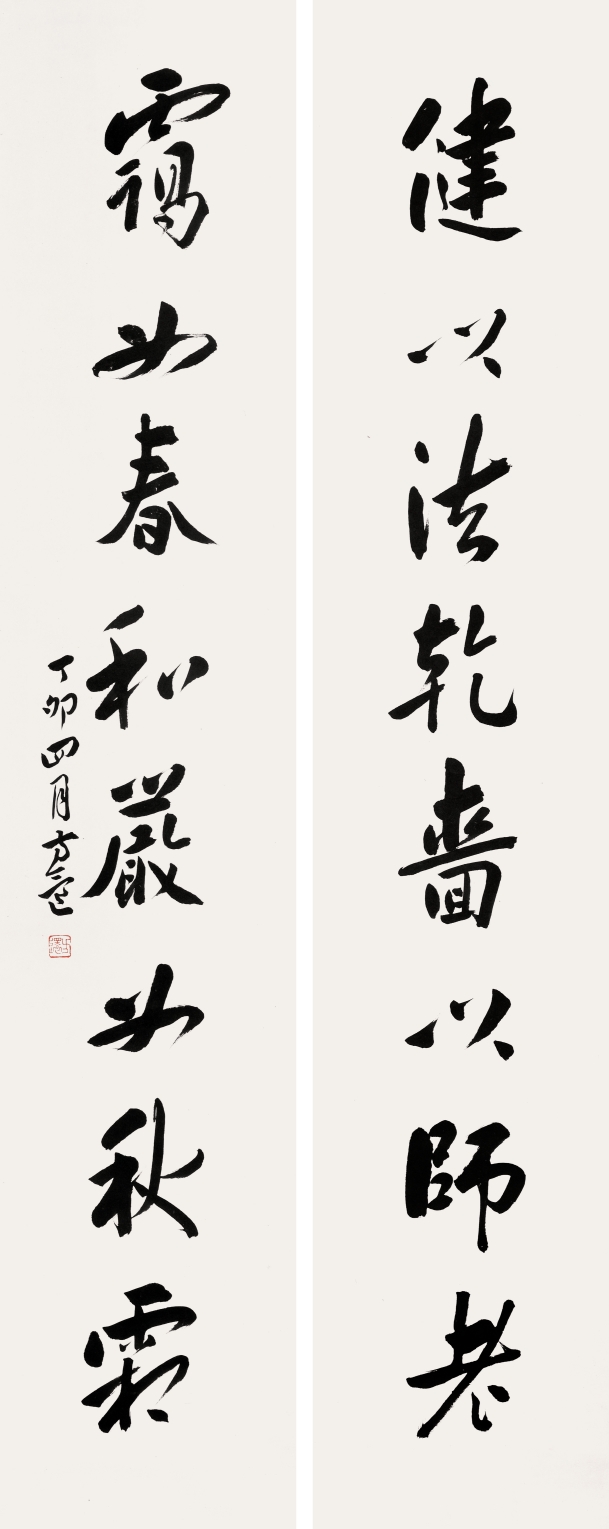 健以法乾嗇以師老
靄如春和嚴如秋霜
丁卯四月方